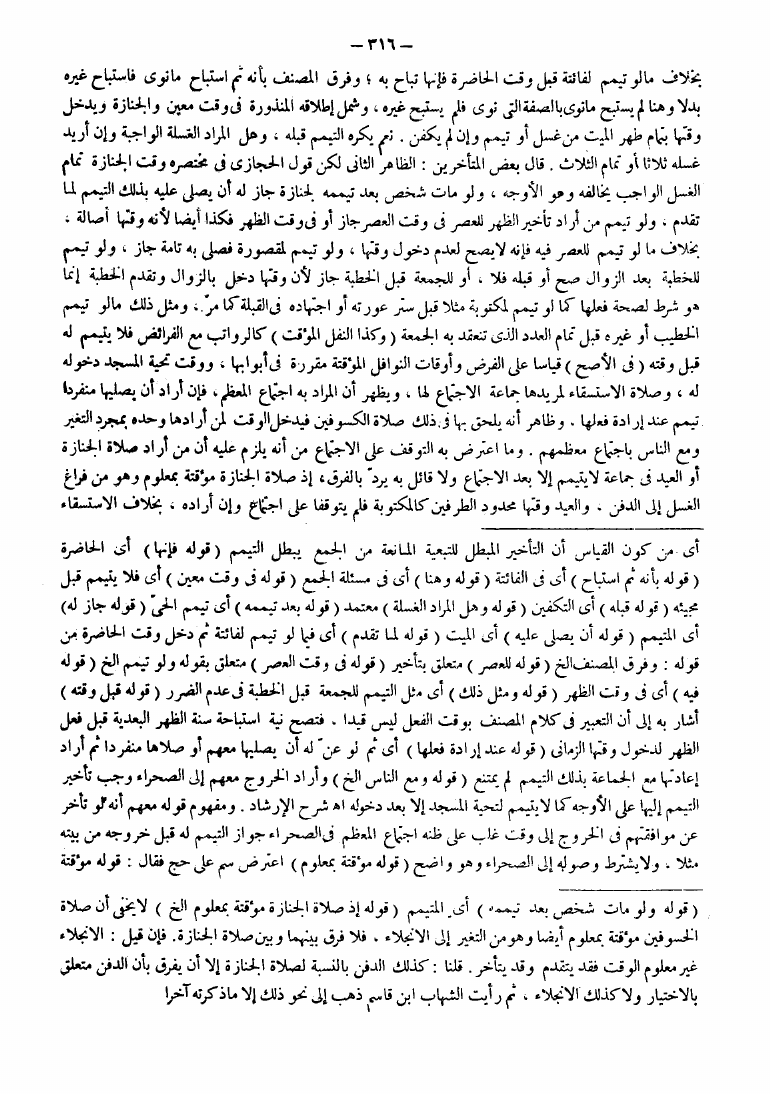 — ٣١٦ —
بخلاف مالو تيمم لفائتة قبل وقت الحاضرة فإنها تباح به ؛ وفرق المصنف بأنه ثم استباح مانوى فاستباح غيره
بدلا وهنا لم يستبح مانوى بالصفة التى نوى فلم يستبح غيره ، وشمل إطلاقه المنذورة فى وقت معين والجنازة ويدخل
وقتها بتمام طهر الميت من غسل أو تيمم وإن لم يكفن . نعم يكره التيمم قبله ، وهل المراد الغسلة الواجبة وإن أريد
غسله ثلاثا أو تمام الثلاث . قال بعض المتأخرين : الظاهر الثانى لكن قول الحجازى فى مختصره وقت الجنازة تمام
الغسل الواجب يخالفه وهو الأوجه ، ولو مات شخص بعد تيممه لجنازة جاز له أن يصلى عليه بذلك التيمم لما
تقدم ، ولو تيمم من أراد تأخير الظهر للعصر فى وقت العصر جاز أو فى وقت الظهر فكذا أيضا لأنه وقتها أصالة ،
بخلاف ما لو تيمم للعصر فيه فإنه لايصح لعدم دخول وقتها ، ولو تيمم لمقصورة فصلى به تامة جاز ، ولو تيمم
للخطبة بعد الزوال صح أو قبله فلا ، أو للجمعة قبل الخطبة جاز لأن وقتها دخل بالزوال وتقدم الخطبة إنما
هو شرط لصحة فعلها كما لو تيمم لمكتوبة مثلا قبل ستر عورته أو اجتهاده فى القبلة كما مرّ ، ومثل ذلك مالو تيمم
الخطيب أو غيره قبل تمام العدد الذى تنعقد به الجمعة ( وكذا النفل المؤقت ) كالرواتب مع الفرائض فلا يتيمم له
قبل وقته ( فى الأصح ) قياسا على الفرض وأوقات النوافل المؤقتة مقررة فى أبوابها ، ووقت تحية المسجد دخوله
له ، وصلاة الاستسقاء لمريدها جماعة الاجتماع لها ، ويظهر أن المراد به اجتماع المعظم ، فإن أراد أن يصليها منفردا
تيمم عند إرادة فعلها . وظاهر أنه يلحق بها فى ذلك صلاة الكسوفين فيدخل الوقت لمن أرادها وحده بمجرد التغير
ومع الناس باجتماع معظمهم . وما اعترض به التوقف على الاجتماع من أنه يلزم عليه أن من أراد صلاة الجنازة
أو العيد فى جماعة لايتيمم إلا بعد الاجتماع ولا قائل به يردّ بالفرق ، إذ صلاة الجنازة مؤقتة بمعلوم وهو من فراغ
الغسل إلى الدفن ، والعيد وقتها محدود الطرفين كالمكتوبة فلم يتوقفا على اجتماع وإن أراده ، بخلاف الاستسقاء
أى من كون القياس أن التأخير المبطل للتبعية المانعة من الجمع يبطل التيمم ( قوله فإنها ) أى الحاضرة
( قوله بأنه ثم استباح ) أى فى الفائتة ( قوله وهنا ) أى فى مسئلة الجمع ( قوله فى وقت معين ) أى فلا يتيمم قبل
مجيئه ( قوله قبله ) أى التكفين ( قوله وهل المراد الغسلة ) معتمد ( قوله بعد تيممه ) أى تيمم الحىّ ( قوله جاز له )
أى المتيمم ( قوله أن يصلى عليه ) أى الميت ( قوله لما تقدم ) أى فيما لو تيمم لفائتة ثم دخل وقت الحاضرة من
قوله : وفرق المصنف الخ ( قوله للعصر ) متعلق بتأخير ( قوله فى وقت العصر ) متعلق بقوله ولو تيمم الخ ( قوله
فيه ) أى فى وقت الظهر ( قوله ومثل ذلك ) أى مثل التيمم للجمعة قبل الخطبة فى عدم الضرر ( قوله قبل وقته )
أشار به إلى أن التعبير فى كلام المصنف بوقت الفعل ليس قيدا ، فتصح نية استباحة سنة الظهر البعدية قبل فعل
الظهر لدخول وقتها الزمانى ( قوله عند إرادة فعلها ) أى ثم لو عنّ له أن يصليها معهم أو صلاها منفردا ثم أراد
إعادتها مع الجماعة بذلك التيمم لم يمتنع ( قوله ومع الناس الخ ) وأراد الخروج معهم إلى الصحراء وجب تأخير
التيمم إليها على الأوجه كما لايتيمم لتحية المسجد إلا بعد دخوله اه شرح الإرشاد . ومفهوم قوله معهم أنه لو تأخر
عن موافقتهم فى الخروج إلى وقت غلب على ظنه اجتماع المعظم فى الصحراء جواز التيمم له قبل خروجه من بيته
مثلا ، ولايشترط وصوله إلى الصحراء وهو واضح ( قوله مؤقتة بمعلوم ) اعترض سم على حج فقال : قوله مؤقتة
( قوله ولو مات شخص بعد تيممه ) أى المتيمم ( قوله إذ صلاة الجنازة مؤقتة بمعلوم الخ ) لايخفى أن صلاة
الخسوفين مؤقتة بمعلوم أيضا وهو من التغير إلى الانجلاء ، فلا فرق بينهما وبين صلاة الجنازة. فإن قيل : الانجلاء
غير معلوم الوقت فقد يتقدم وقد يتأخر . قلنا : كذلك الدفن بالنسبة لصلاة الجنازة إلا أن يفرق بأن الدفن متعلق
بالاختيار ولا كذلك الانجلاء ، ثم رأيت الشهاب ابن قاسم ذهب إلى نحو ذلك إلا ماذكرته آخرا